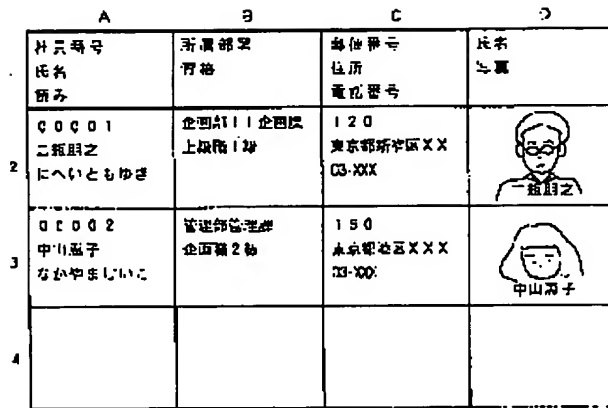 A B C D
社員番号
氏名
読み
所属部署
資格
郵便番号
住所
電話番号
氏名
写真
2
00001
二瓶朋之
にへいともゆき
企画部11企画課
上級職1級
120
東京都新宿区XX
03-XXX
二瓶朋之
3
00002
中山
なかやま
管理部管理課
企画職2級
150
東京都港区XXX
03-XXX
中山
4